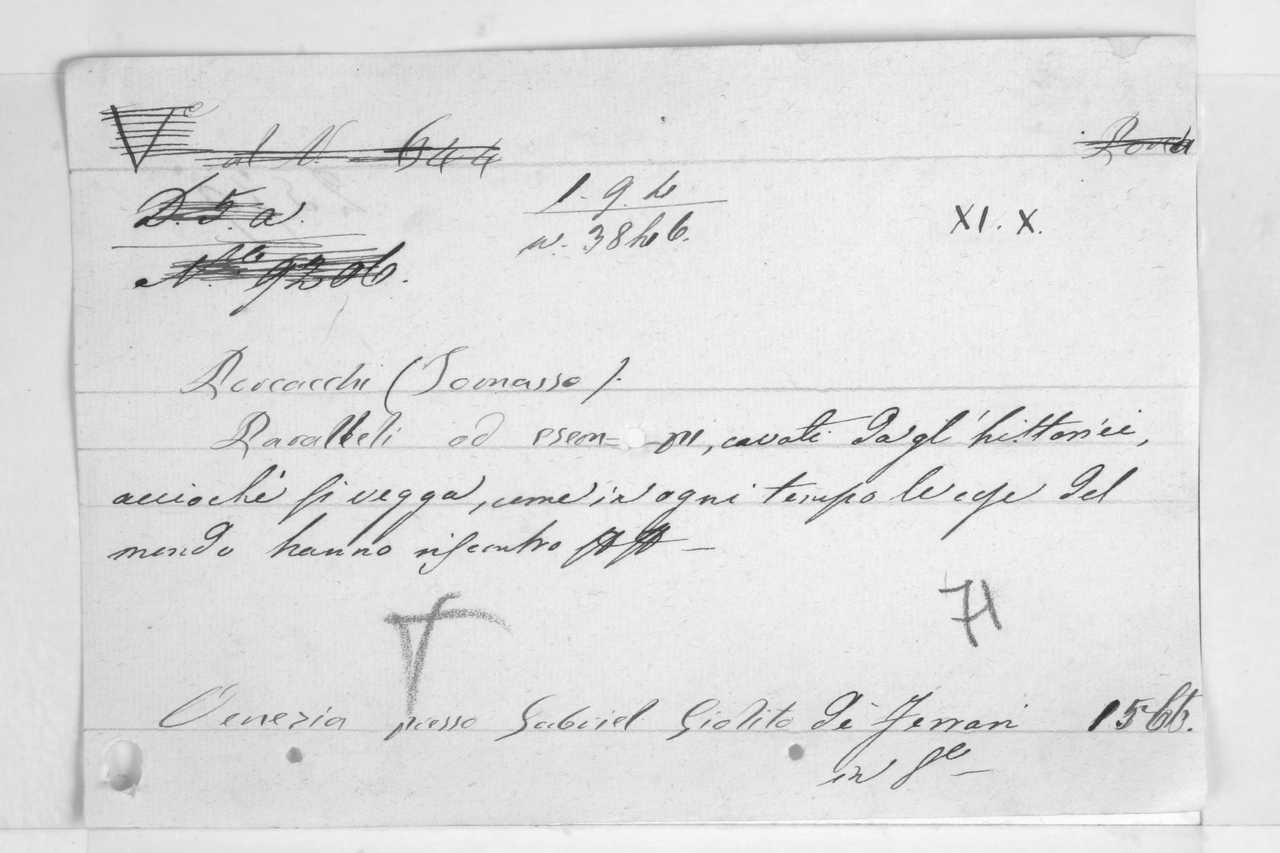 Vᵉ al N. 644
D. 5. a.
1. 9. h
XI. X.
Nᵒ 9206.
n. 38h6.
Porcacchi (Tomasso).
Paralleli od esem= =pii, cavati dagl'historici,
acciochè si vegga, come in ogni tempo le cose del
mondo hanno riscontro
71
Venezia presso Gabriel Giolito de' Ferrari 1566.
in 8º —